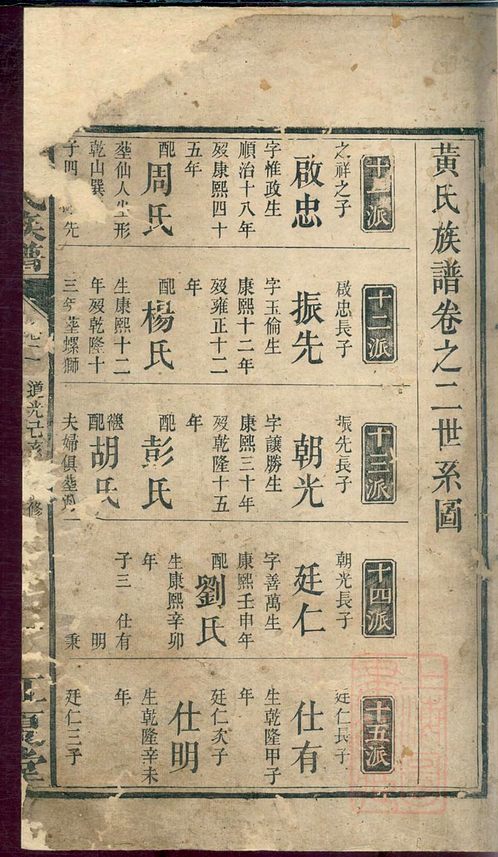 黃氏族譜卷之二世系圖
十一派
之祥之子
啟忠
字惟政生
順治十八年
歿康熙四十
五年
配
周氏
塟仙人坐形
乾山巽
子四 先
十二派
啟忠長子
振先
字玉倫生
康熙十二年
歿雍正十二
年
配
楊氏
生康熙十二
年歿乾隆十
三年塟螺螄
十三派
振先長子
朝光
字讓勝生
康熙三十年
歿乾隆十五
年
配
彭氏
繼配
胡氏
夫婦俱塟
十四派
朝光長子
廷仁
字善萬生
康熙壬申年
配
劉氏
生康熙辛卯
年
子三 仕有
明
秉
十五派
廷仁長子
仕有
生乾隆甲子
年
廷仁次子
仕明
生乾隆辛未
年
廷仁三子
氏族譜
道光己亥
修
江夏堂